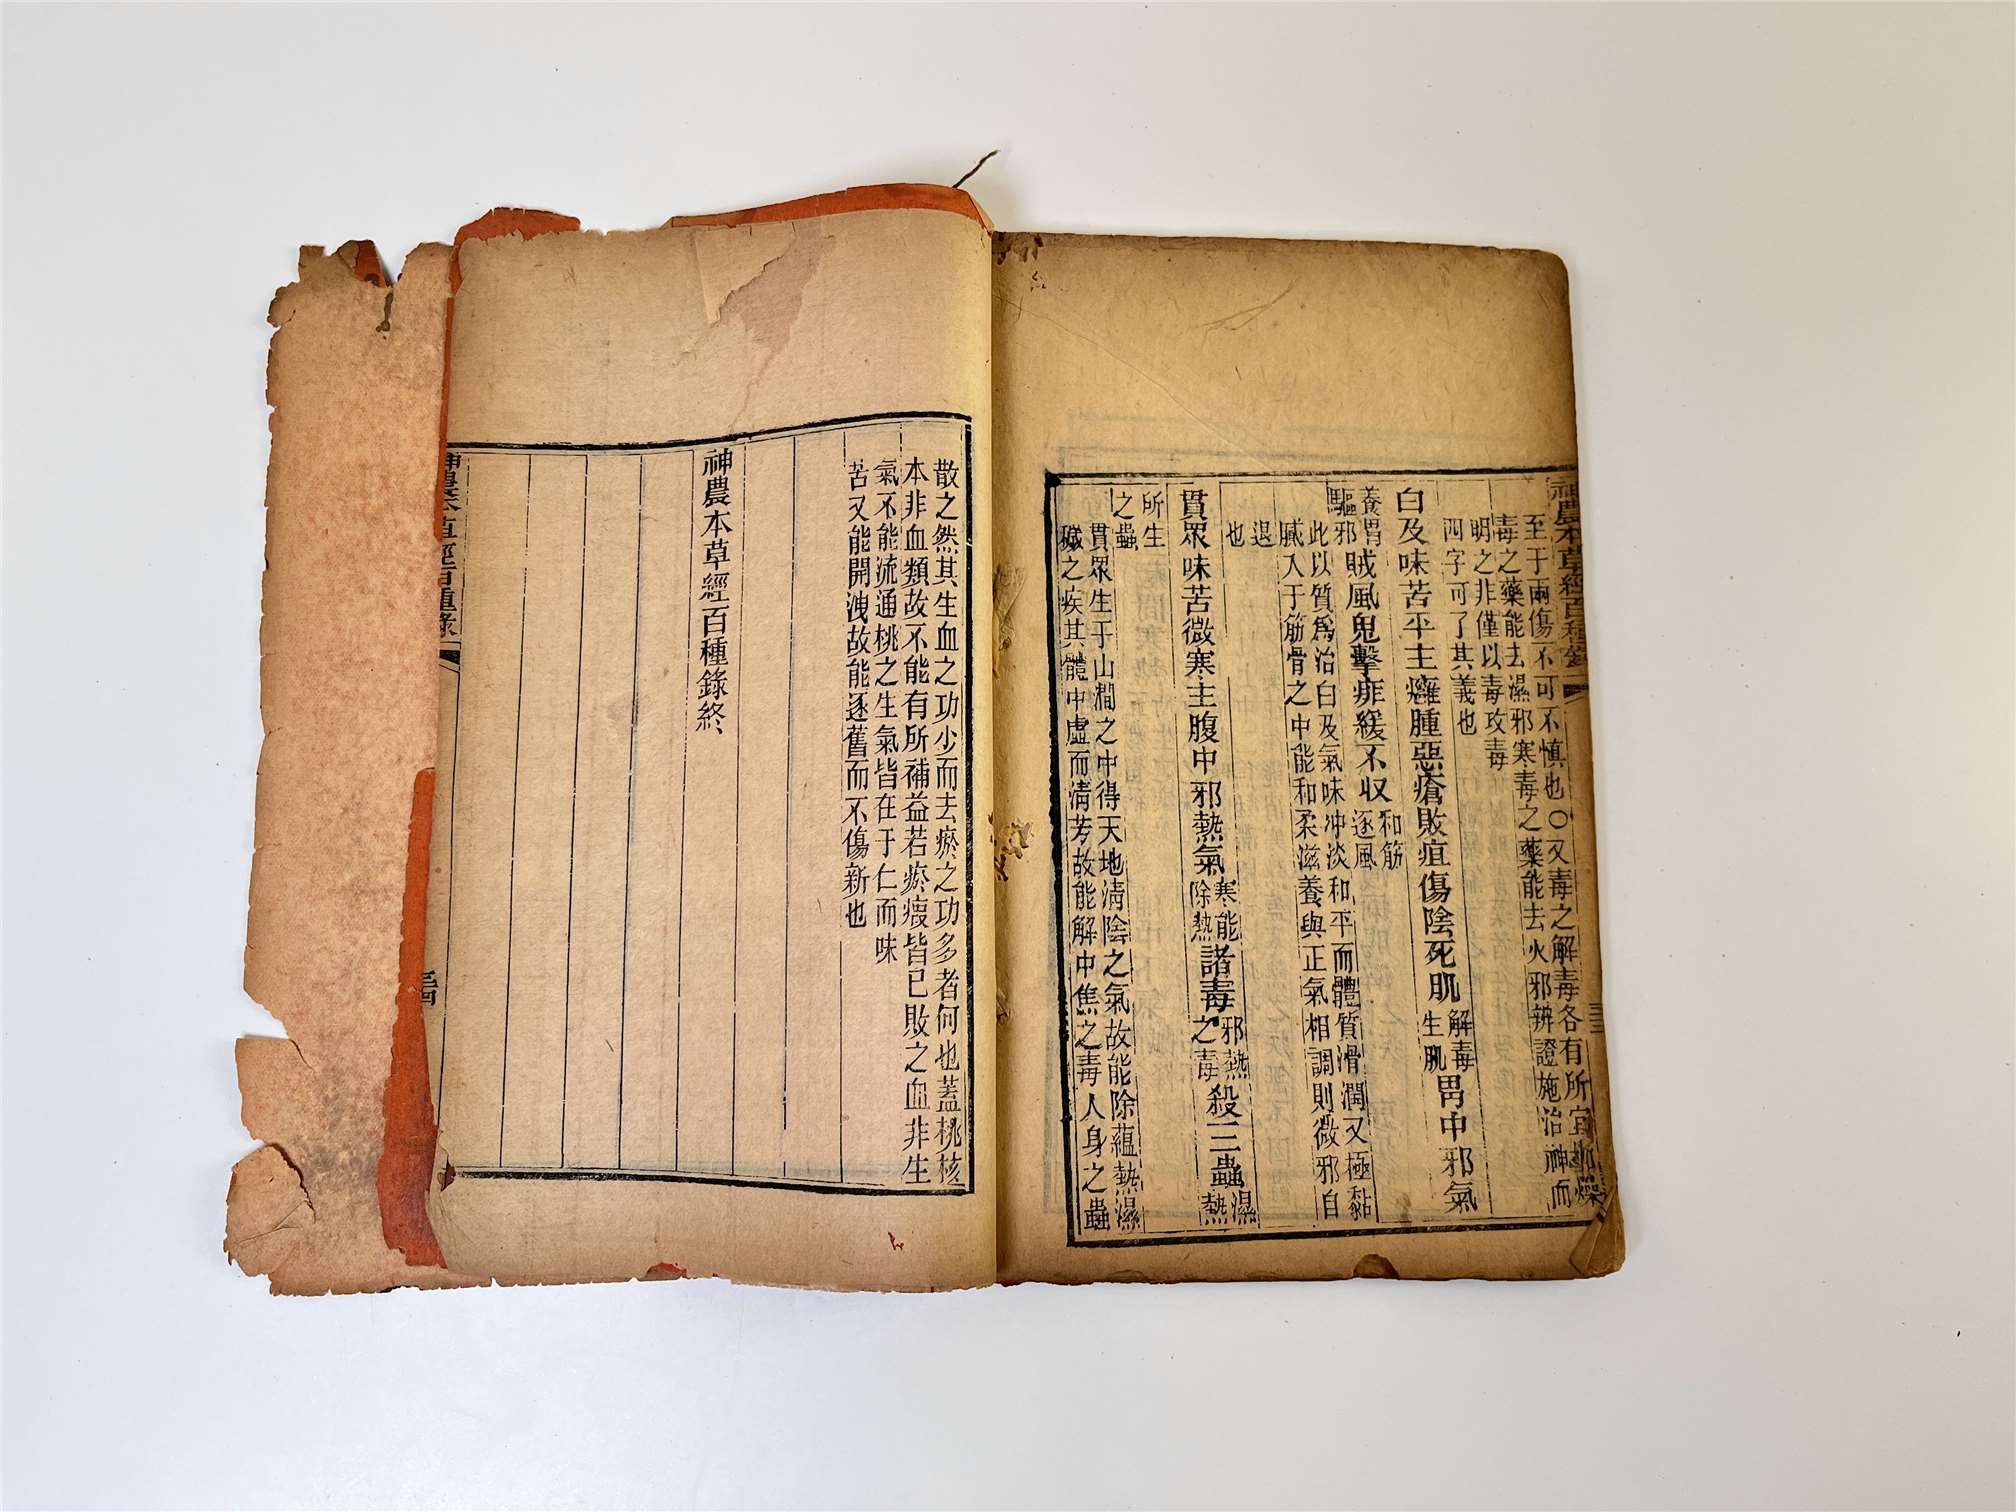 神農本草經百種錄
至于兩傷不可不慎也〇又毒之解毒各有所宜如燥
毒之藥能去濕邪寒毒之藥能去火邪辨證施治神而
明之非僅以毒攻毒
四字可了其義也
白及味苦平主癰腫惡瘡敗疽傷陰死肌解毒生肌胃中邪氣
養胃驅邪賊風鬼擊痱緩不收和筋逐風
此以質爲治白及氣味冲淡和平而體質滑潤又極黏
膩入于筋骨之中能和柔滋養與正氣相調則微邪自
退
也
貫眾味苦微寒主腹中邪熱氣寒能除熱諸毒邪熱之毒殺三蟲濕熱
所生之蟲
貫眾生于山澗之中得天地清陰之氣故能除蘊熱濕
穢之疾其體中虛而清芳故能解中焦之毒人身之蟲
散之然其生血之功少而去瘀之功多者何也蓋桃核
本非血類故不能有所補益若瘀瘕皆已敗之血非生
氣不能流通桃之生氣皆在于仁而味
苦又能開洩故能逐舊而不傷新也
神農本草經百種錄終
神農本草經百種錄
三四